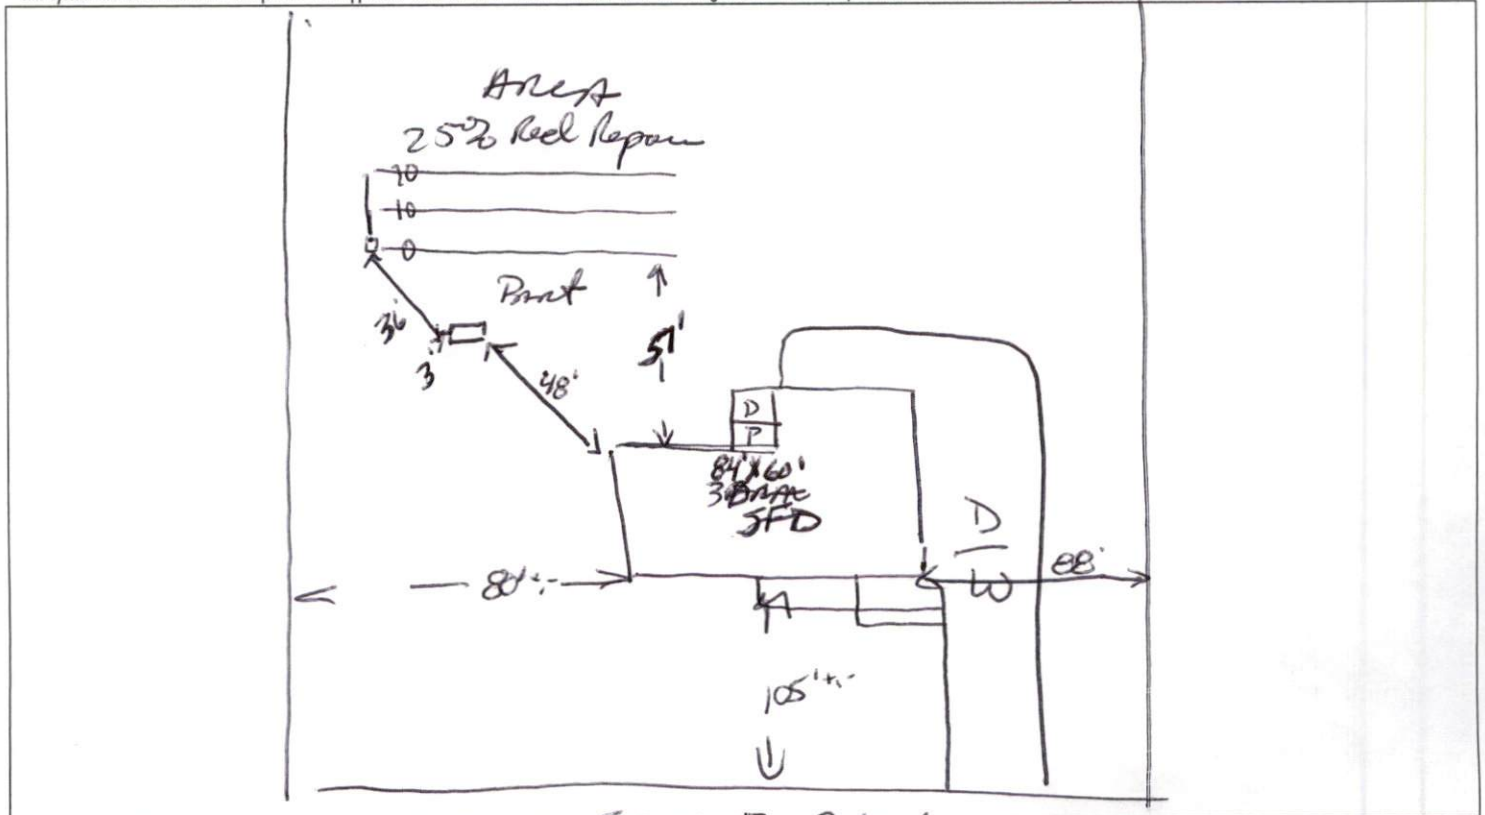 Area
25% Red Repair
20
10
0
36'
3'
48'
51'
D
P
84'X60'
SFD
D
W
80'+-
88'
105'+-